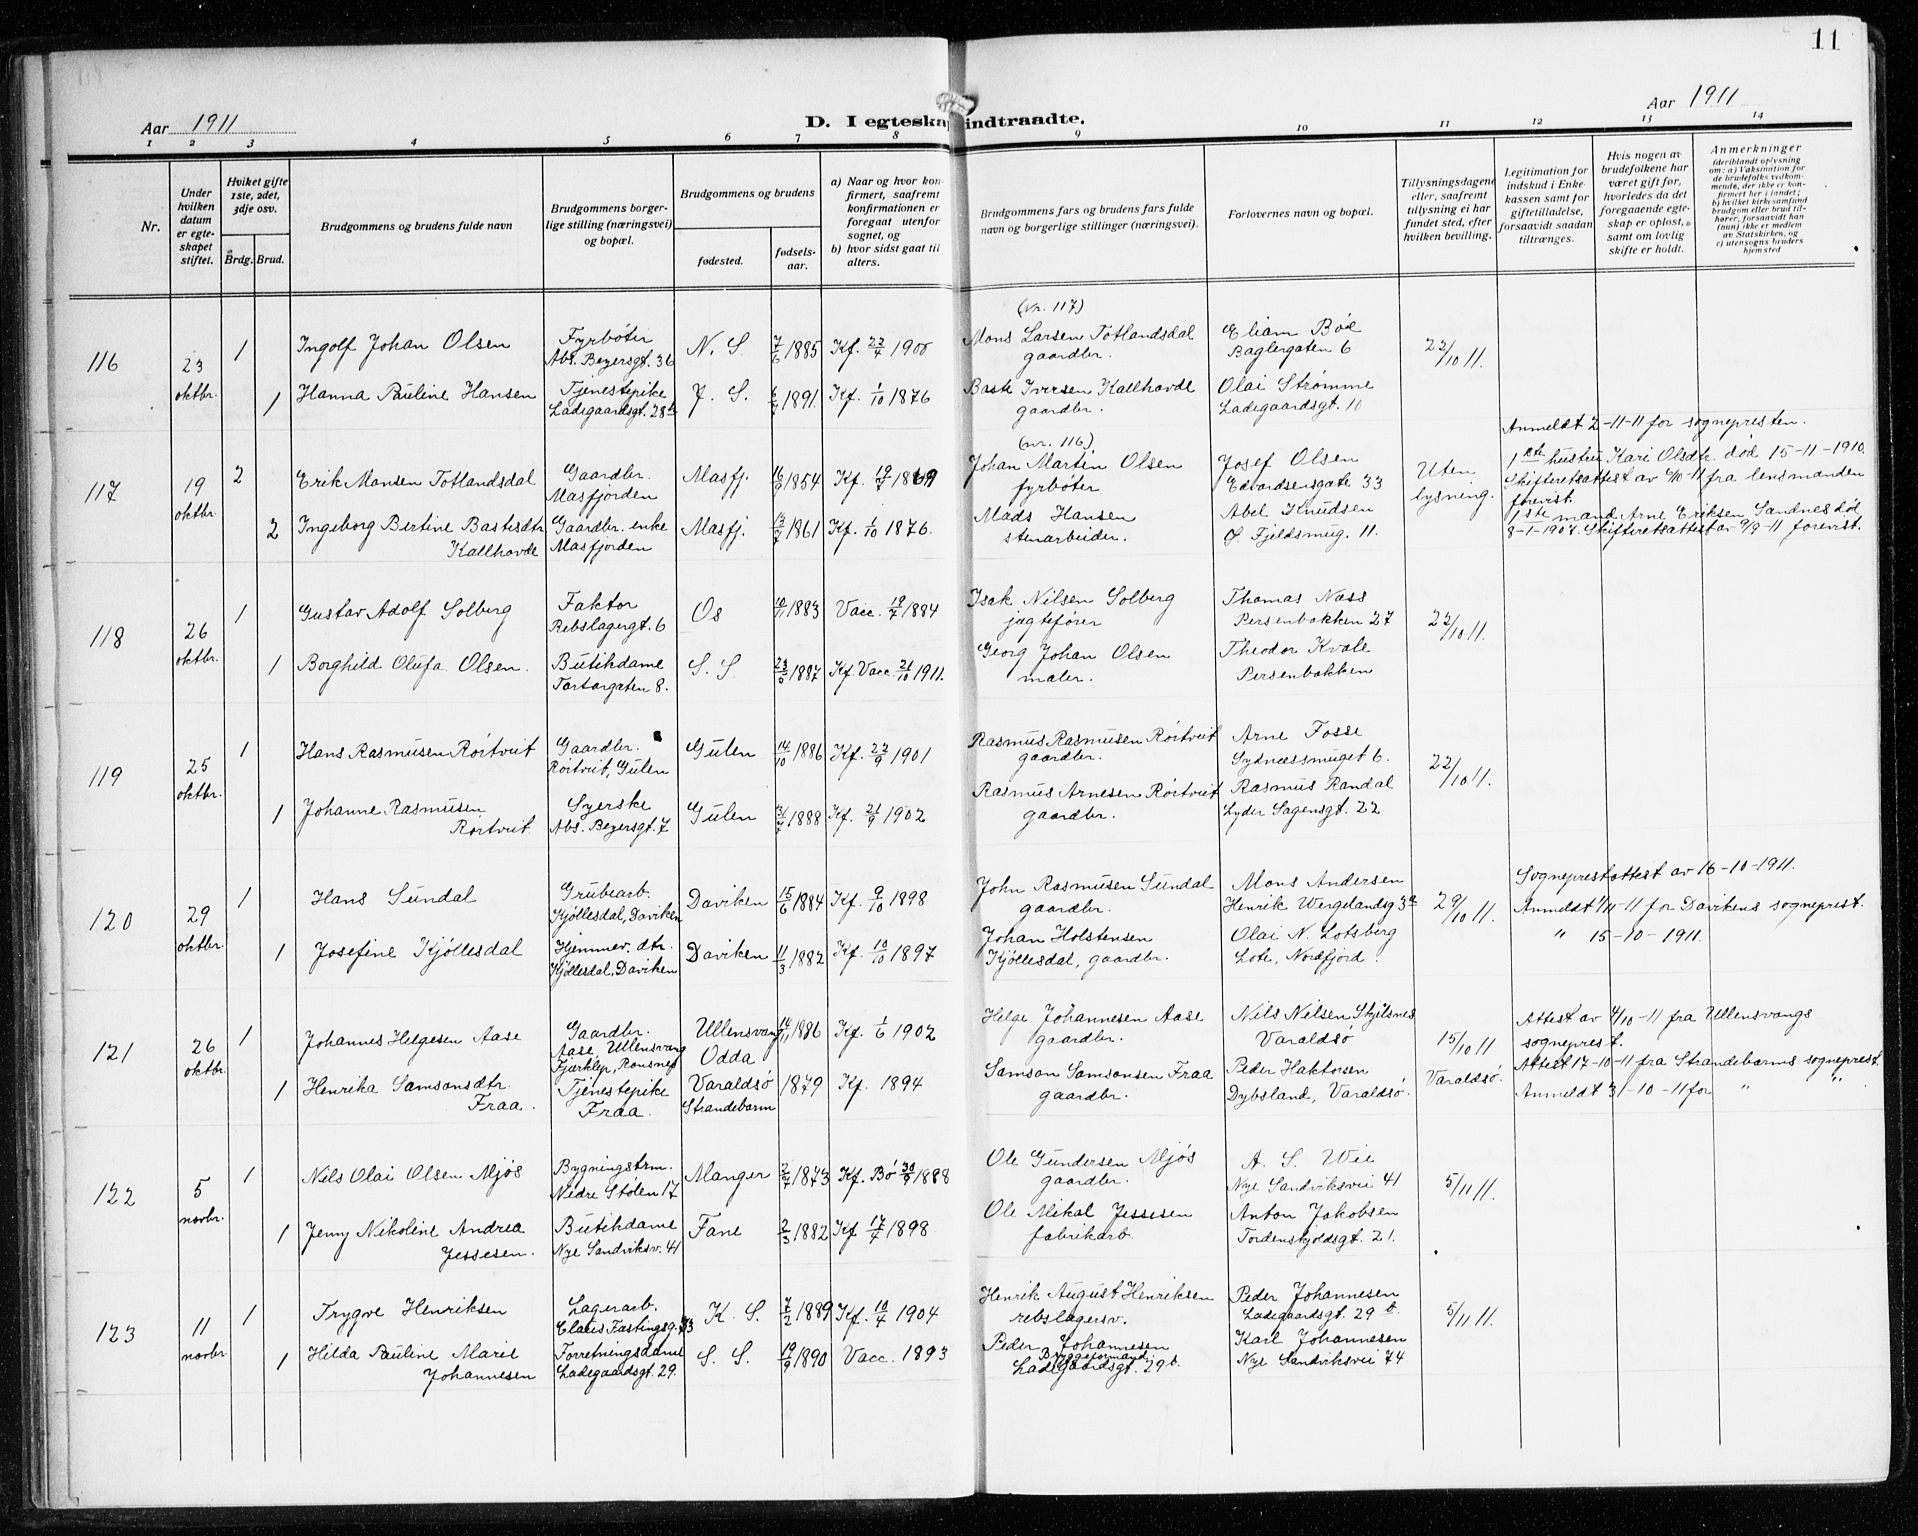 11
Aar 1911
D. I egteskap indtraadte.
Aar 1911
1 2 3 4 5 6 7 8 9 10 11 12 13 14
Nr.
Under hvilken datum er egteskapet stiftet.
Hvilket gifte 1ste, 2det, 3dje osv.
Brdg. Brud.
Brudgommens og brudens fulde navn
Brudgommens borgerlige stilling (næringsvei) og bopæl.
Brudgommens og brudens
fødested.
fødselsaar.
a) Naar og hvor konfirmert, saafremt konfirmationen er foregaat utenfor sognet, og
b) hvor sidst gaat til alters.
Brudgommens fars og brudens fars fulde navn og borgerlige stillinger (næringsvei).
Forlovernes navn og bopæl.
Tillysningsdagene eller, saafremt tillysning ei har fundet sted, efter hvilken bevilling.
Legitimation for indskud i Enkekassen samt for giftetilladelse, forsaavidt saadan tiltrænges.
Hvis nogen av brudefolkene har været gift før, hvorledes da det foregaaende egteskap er opløst, samt om lovlig skifte er holdt.
Anmerkninger
(deriblandt oplysning om: a) Vaksination for de brudefolks vedkommende, der ikke er konfirmert her i landet; b) hvilket kirkesamfund brudgom eller brud tilhører, forsaavidt han (hun) ikke er medlem av Statskirken, og c) utensogns bruders hjemsted
(Nr. 117)
116 23 oktbr. 1 Ingolf Johan Olsen Fyrbøter Abs. Beyersgt. 36 N. S 7/6 1885 Kf. 22/4 1900 Mons Larsen Totlandsdal gaardbr. Eliam Bøe Baglergaten 6 22/10 11.
1 Hanna Pauline Hansen Tjenestepike Ladegaardsgt. 28b J. S. 1891. Kf. 1/10 1876 Baste Iversen Kallhovde gaardbr. Olai Strømme Ladegaardsgt. 10
Anmeldt 2-11-11 for sognepresten.
(nr. 116)
117 19 oktbr. 2 Erik Monsen Totlandsdal Gaardbr. Masfjorden Masfj. 16/9 1854 Kf. 19/7 1869 Johan Martin Olsen fyrbøter Josef Olsen Edvardsensgate 33 Uten lysning.
1ste hustru Kari Olsdtr. død 15-11-1910.
Skifteretsattest av 4/10-11 fra lensmanden forevist.
2 Ingeborg Bertine Bastesdtr Kallhovde Gaardbr. enke Masfjorden Masfj. 1861 Kf. 1/10 1876. Mads Hansen stenarbeider. Abel Knudsen Ø. Fjeldsmug. 11.
1ste mand. Arne Eriksen Sandnes død 8-1-1907. Skifteretsattest av 9/9-11 forevist.
118 26 oktbr. 1 Gustav Adolf Solberg Faktor Rebslagergt. 6 Os 10/11 1883 Vacc. 19/7 1884 Isak Nilsen Solberg jægtefører Thomas Næss Persenbakken 27 22/10 11.
1 Borghild Olufa Olsen. Butikdame Tartargaten 8. S. S. 1887 Kf. Vacc. 21/10 1911. Georg Johan Olsen maler. Theodor Kvale Persenbakken
119 25 oktbr. 1 Hans Rasmusen Rørtveit Gaardbr. Rørtveit, Gulen Gulen 14/10 1886 Kf. 22/9 1901 Rasmus Rasmusen Rørtveit gaardbr. Arne Fosse Sydnæssmuget 6. 22/10 11.
1 Johanne Rasmusen Rørtveit. Syerske Abs. Beyersgt. 7 Gulen 31/7 1888 Kf. 21/9 1902 Rasmus Arnesen Rørtveit gaardbr. Rasmus Randal Lyder Sagensgt. 22
120 29 oktbr. 1 Hans Sundal Grubearb. Kjøllesdal, Daviken Daviken 15/6 1884 Kf. 9/10 1898 John Rasmusen Sundal gaardbr. Mons Andersen Henrik Wergelandsg 3a 29/10 11.
Sogneprestattest av 16-10-1911.
Anmeldt 1/11-11 for Davikens sogneprest.
1 Josefine Kjøllesdal Hjemmev. dtr. Kjøllesdal, Daviken Daviken 11/3 1882 Kf. 10/10 1897 Johan Holstensen Kjøllesdal, gaardbr. Olai N. Lotsberg Lote, Nordfjord.
" 15-10-1911.
121 26 oktbr. 1 Johannes Helgesen Aase Gaardbr. Aase, Ullensvang Ullensvang Odda 14/11 1886 Kf. 1/6 1902 Helge Johannesen Aase gaardbr. Nils Nilsen Skjelsnes Varaldsø 15/10 11 Varaldsø.
Attest av 4/10-11 fra Ullensvangs sogneprest.
1 Henrika Samsonsdtr. Fraa. Tjenestepike Fraa. Varaldsø Strandebarm 1879 Kf. 1894 Samson Samsonsen Fraa gaardbr. Peder Haktorsen Dybsland, Varaldsø.
Attest 17-10-11 fra Strandebarms sogneprest.
Anmeldt 31-10-11 for " "
122 5 novbr. 1 Nils Olai Olsen Mjøs Bygningstrm. Nedre Stølen 17 Manger 2/7 1873 Kf. Bø 30/9 1888 Ole Gundersen Mjøs gaardbr. A. S. Wie Nye Sandviksvei 41 5/11 11.
1 Jenny Nikoline Andrea Jessesen. Butikdame Nye Sandviksv. 41 Fane 2/3 1882 Kf 17/7 1898 Ole Mikal Jessesen fabrikarb. Anton Jakobsen Tordenskjoldsgt. 21.
123 11 novbr. 1 Trygve Henriksen Lagerarb. Claus Fastingsg. 33 K. S. 7/2 1889 Kf. 10/4 1904 Henrik August Henriksen rebslagersv. Peder Johannesen Ladegaardsgt. 29b. 5/11 11.
1 Hilda Pauline Marie Johannesen Forretningsdame Ladegaardsgt. 29. S. S. 19/9 1890 Vacc. 1893 Peder Johannesen Bryggeformand Ladegaardsgt. 29b. Karl Johannesen Nye Sandviksvei 74